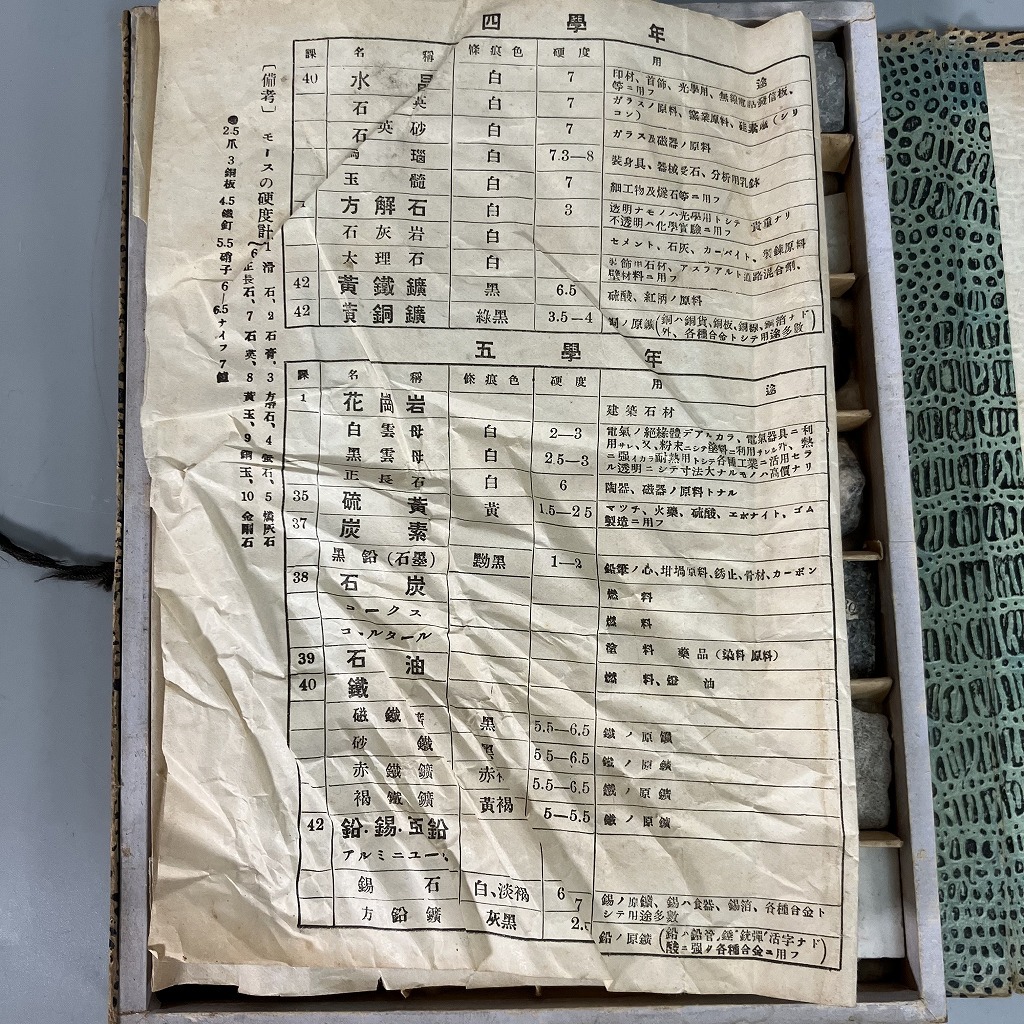 四學年
課 名稱 條痕色 硬度 用途
40 水晶 白 7 印材、首飾、光學用、無線電話發信板、等ニ用フ
石英 白 7 ガラスノ原料、窯業原料、硅素（シリコン）
石英砂 白 7 ガラス及磁器ノ原料
瑪瑙 白 7.3—8 裝身具、器械受石、分析用乳鉢
玉髓 白 7 細工物及燧石等ニ用フ
方解石 白 3 透明ナモノハ光學用トシテ貴重ナリ 不透明ハ化學實驗ニ用フ
石灰岩 白 セメント、石灰、カーバイト、製鍊原料
大理石 白 裝飾用石材、アスファルト道路混合劑、壁材料ニ用フ
42 黃鐵鑛 黑 6.5 硫酸、紅柄ノ原料
42 黃銅鑛 綠黑 3.5—4 銅ノ原鑛（銅ハ銅貨、銅板、銅線、銅箔ナド外、各種合金トシテ用途多數）
五學年
課 名稱 條痕色 硬度 用途
1 花崗岩 建築石材
白雲母 白 2—3 電氣ノ絕緣體デアルカラ、電氣器具ニ利用サレ、又、粉末ニシテ塗料ニ利用サレル外、熱
黑雲母 白 2.5—3 ニ强イカラ耐熱用トシテ各種工業ニ活用セラル透明ニシテ寸法大ナルモノハ高價ナリ
正長石 白 6 陶器、磁器ノ原料トナル
35 硫黃 黃 1.5—2.5 マツチ、火藥、硫酸、エボナイト、ゴム製造ニ用フ
37 炭素
黑鉛（石墨） 黝黑 1—2 鉛筆ノ心、坩堝原料、銹止、骨材、カーボン
38 石炭 燃料
コークス 燃料
コールタール 塗料 藥品（染料原料）
39 石油 燃料、燈油
40 鐵
磁鐵鑛 黑 5.5—6.5 鐵ノ原鑛
砂鐵 黑 5.5—6.5 鐵ノ原鑛
赤鐵鑛 赤 5.5—6.5 鐵ノ原鑛
褐鐵鑛 黃褐 5—5.5 鐵ノ原鑛
42 鉛・錫・亞鉛
アルミニユーム
錫石 白、淡褐 6—7 錫ノ原鑛、錫ハ食器、錫箔、各種合金トシテ用途多數
方鉛鑛 灰黑 2. 鉛ノ原鑛（鉛ハ鉛管、錘、銃彈、活字ナド 酸ニ强ク各種合金ニ用フ）
〔備考〕 モースの硬度計（1 滑石、2 石膏、3 方解石、4 螢石、5 燐灰石
6 正長石、7 石英、8 黃玉、9 鋼玉、10 金剛石
●2.5 爪 3 銅板 4.5 鐵釘 5.5 硝子 6—6.5 ナイフ 7 鑢